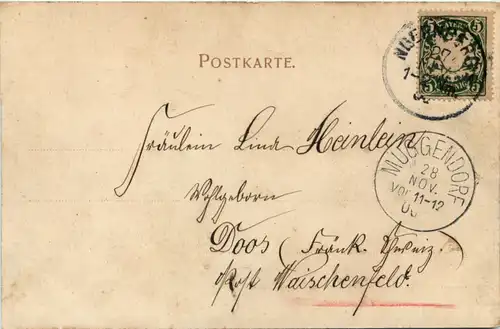 POSTKARTE.
Fräulein Lina Heinlein
Wohlgeborn
Doos (Fränk. Schweiz.)
Post Waischenfeld.
5 5
MUGGENDORF
28
NOV.
VOR. 11-12